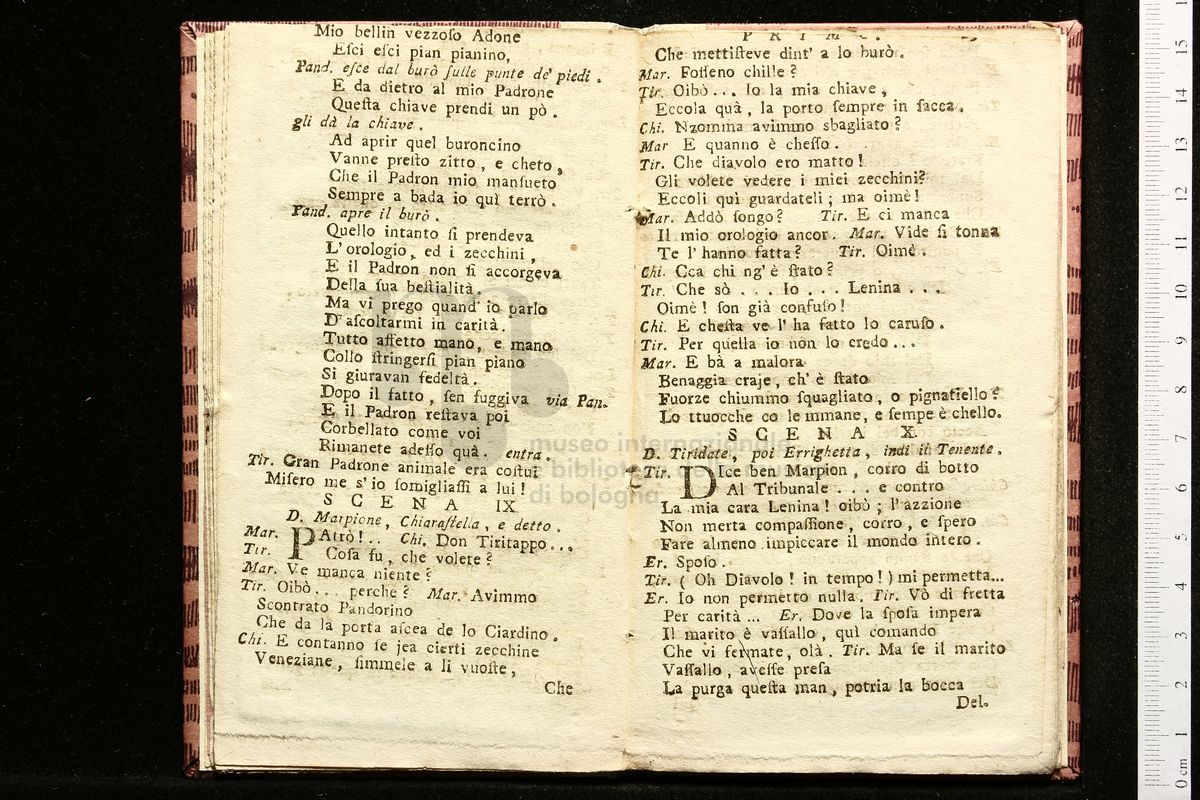 Mio bellin vezzoſo Adone
Eſci eſci pian pianino,
Pand. eſce dal burò ſulle punte de' piedi.
E da dietro al mio Padrone
Queſta chiave prendi un pò.
gli dà la chiave.
Ad aprir quel buroncino
Vanne preſto zitto, e cheto,
Che il Padron mio manſueto
Sempre a bada io quì terrò.
Pand. apre il burò.
Quello intanto ſi prendeva
L' orologio, ed i zecchini,
E il Padron non ſi accorgeva
Della ſua beſtialità.
Ma vi prego quand' io parlo
D' aſcoltarmi in carità.
Tutto affetto mano, e mano
Collo ſtringerſi pian piano
Si giuravan fedeltà.
Dopo il fatto, ſen fuggiva via Pan.
E il Padron reſtava poi
Corbellato come voi
Rimanete adeſſo quà. entra.
Tir. Gran Padrone animale era coſtui
Miſero me s' io ſomigliaſſi a lui!
SCENA IX.
D. Marpione, Chiaraſtella, e detto.
Mar. PAtrò!.. Chi. Don Tiritappo...
Tir. Coſa fu, che volete?
Mar. Ve manca niente?
Tir. Oibò... perche? Mar. Avimmo
Scontrato Pandorino
Che da la porta aſcea de lo Ciardino.
Chi. E contanno ſe jea cierti zecchine
Veneziane, ſimmele a li vuoſte,
Che
PRIMO.
Che mettiſteve dint' a lo burò.
Mar. Foſſeno chille?
Tir. Oibò... Io la mia chiave,
Eccola quà, la porto ſempre in ſacca.
Chi. Nzomma avimmo sbagliato?
Mar E quanno è cheſſo.
Tir. Che diavolo ero matto!
Gli volete vedere i miei zecchini?
Eccoli quì guardateli; ma oimè!
Mar. Addò ſongo? Tir. E ci manca
Il mio orologio ancor. Mar. Vide ſi tonna
Te l' hanno fatta? Tir. Oimè.
Chi. Cca chi ng' è ſtato?
Tir. Che sò ... Io ... Lenina ...
Oimè! ſon già confuſo!
Chi. E cheſta ve l' ha fatto lo caruſo.
Tir. Per quella io non lo credo...
Mar. E bà a malora
Benaggia craje, ch' è ſtato
Fuorze chiummo ſquagliato, o pignatiello?
Lo ttuocche co le mmane, e ſempe è chello.
SCENA X.
D. Tiridate, poi Errighetta, indi il Tenente.
Tir. DIce ben Marpion, corro di botto
Al Tribunale ... e contro
La mia cara Lenina! oibò; l' azzione
Non merta compaſſione, corro, e ſpero
Fare almeno impiccare il mondo intero.
Er. Spoſo.
Tir. (Oh Diavolo! in tempo!) mi permetta...
Er. Io non permetto nulla. Tir. Vò di fretta
Per carità ... Er. Dove la ſpoſa impera
Il marito è vaſſallo, quì comando
Che vi fermate, olà. Tir. Ma ſe il marito
Vaſſallo, aveſſe preſa
La purga queſta man, potria la bocca
Del.
museo internazionale
e biblioteca
di bologna
0 cm 1 2 3 4 5 6 7 8 9 10 11 12 13 14 15